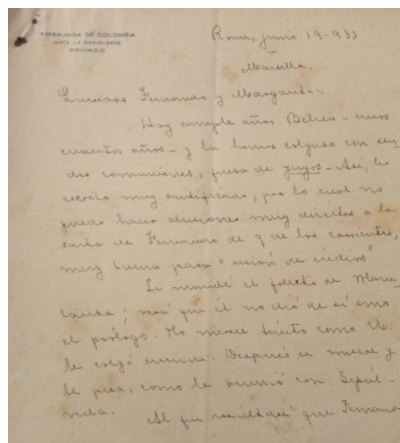 EMBAJADA DE COLOMBIA
ANTE LA SANTA SEDE
PRIVADO
Roma, junio 19-933
Queridos Fernando y Margarita:
Hoy cumple años - unos
cuantos años - y la hemos colgado con
dos comuniones, fuera de yugos - Así, les
escribo muy santificado, por lo cual no
puedo hacer alusiones muy directas a la
carta de Fernando de 9 de los corrientes,
muy buena para
Le mandé el folleto de
; que él no dió de sí sino
el prólogo. No siento como
le colgó. Después se
le pica, como le ocurrió con Sepúl-
veda.
Al fin resultará que Fernando